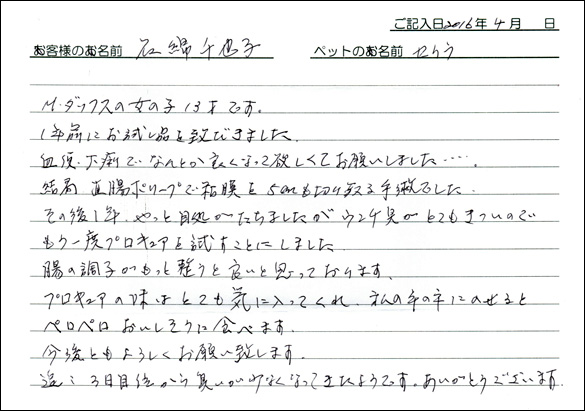 ご記入日2016年4月 日
お客様のお名前 石綿千恵子 ペットのお名前 せりう
M・ダックスの女の子13才です。
1年前にお試し品を致だきました
血便・下痢で なんとか良くなって欲しくてお願いしました……。
結局 直腸ポリープで粘膜を5cmも切り取る手術をした.
その後1年、やっと目処がたちましたがウンチ臭がとてもきついので
もう一度プロキュアを試すことにしました
腸の調子がもっと整うと良いと思っております、
プロキュアの味はとても気に入ってくれ、私の手の平にのせると
ペロペロおいしそうに食べます.
今後ともよろしくお願い致します.
追: 3日目位から臭いが少なくなってきたようです。ありがとうございます.